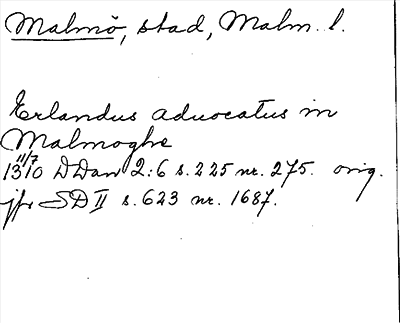 Malmö, stad, Malm. l.
Erlandus advocatus in
Malmoghe
11/7
1310 DDan 2:6 s. 225 nr. 275. orig.
jfr SD II s. 623 nr. 1687.